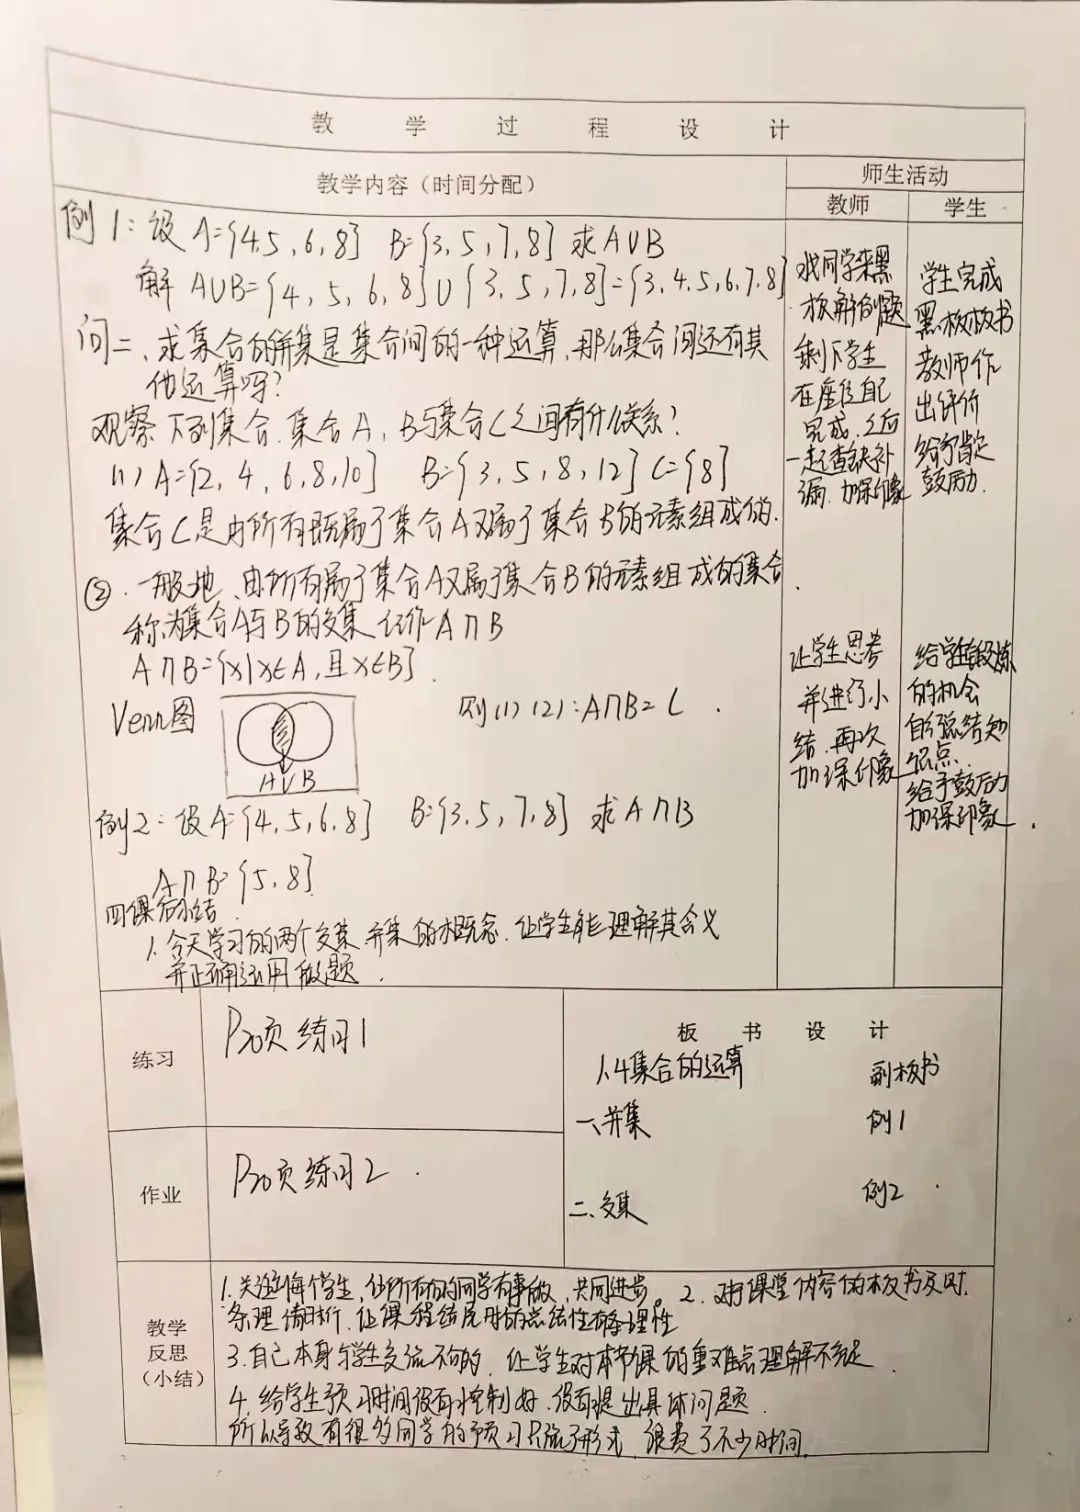 教 学 过 程 设 计
教学内容（时间分配）
师生活动
教师
学生
例1：设 A={4,5,6,8} B={3,5,7,8} 求A∪B
解 A∪B={4,5,6,8}∪{3,5,7,8}={3,4,5,6,7,8}
问二、求集合的并集是集合间的一种运算,那么集合间还有其
他运算吗?
观察下列集合.集合A,B与集合C之间有什么关系?
(1) A={2,4,6,8,10} B={3,5,8,12} C={8}
集合C是由所有既属于集合A又属于集合B的元素组成的.
②.一般地、由所有属于集合A又属于集合B的元素组成的集合
称为集合A与B的交集 记作A∩B
A∩B={x|x∈A,且x∈B}.
Venn图
则(1)(2):A∩B=C.
A∪B
例2:设A={4,5,6,8} B={3,5,7,8} 求A∩B
A∩B={5,8}
四课后小结
1.今天学习的两个交集.并集的概念.让学生能理解其含义
并正确运用做题.
找同学来黑
板解例题
剩下学生
在座位自己
完成.之后
一起查缺补
漏.加深印象
让学生思考
并进行小
结.再次
加深印象
学生完成
黑板板书
教师作
出评价
给予肯定
鼓励.
给学生锻炼
的机会
自己总结知
识点.
给予鼓励
加深印象.
练习
P20页练习1
作业
P20页练习2
板 书 设 计
1.4集合的运算 副板书
一、并集 例1
二、交集 例2
教学
反思
（小结）
1.关注到每个学生,让所有的同学有事做,共同进步。2.对课堂内容的板书及时.
条理清晰.让课程结尾时的总结性有条理性
3.自己本身与学生交流不够.让学生对本节课的重难点理解不够足
4.给学生预习时间没有控制好.没有提出具体问题.
所以导致有很多同学的预习只流于形式.浪费了不少时间.